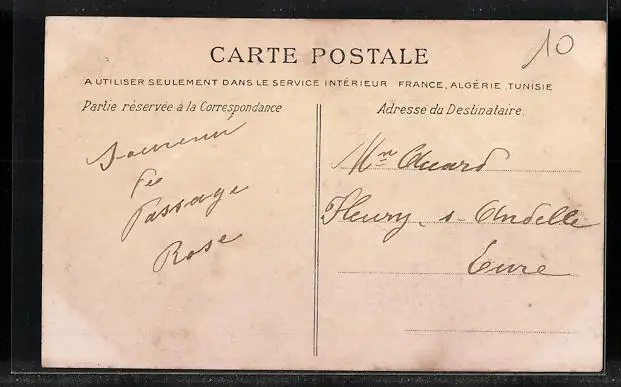 10
CARTE POSTALE
A UTILISER SEULEMENT DANS LE SERVICE INTÉRIEUR FRANCE, ALGÉRIE, TUNISIE
Partie réservée à la Correspondance
Adresse du Destinataire.
Souvenir
Passage
Rose
Mr
Fleury, s- Andelle
Eure